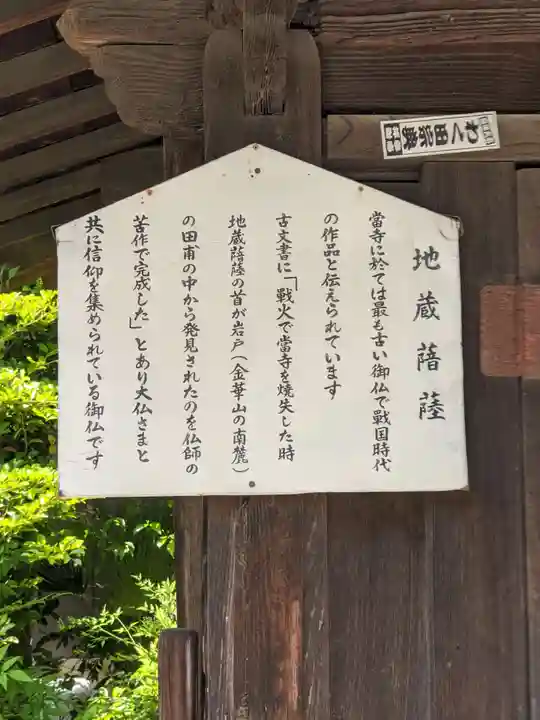 地蔵菩薩
當寺に於ては最も古い御仏で戰国時代
の作品と伝えられています
古文書に「戰火で當寺を焼失した時
地蔵菩薩の首が岩戸(金華山の南麓)
の田甫の中から発見されたのを仏師の
苦作で完成した」とあり大仏さまと
共に信仰を集められている御仏です